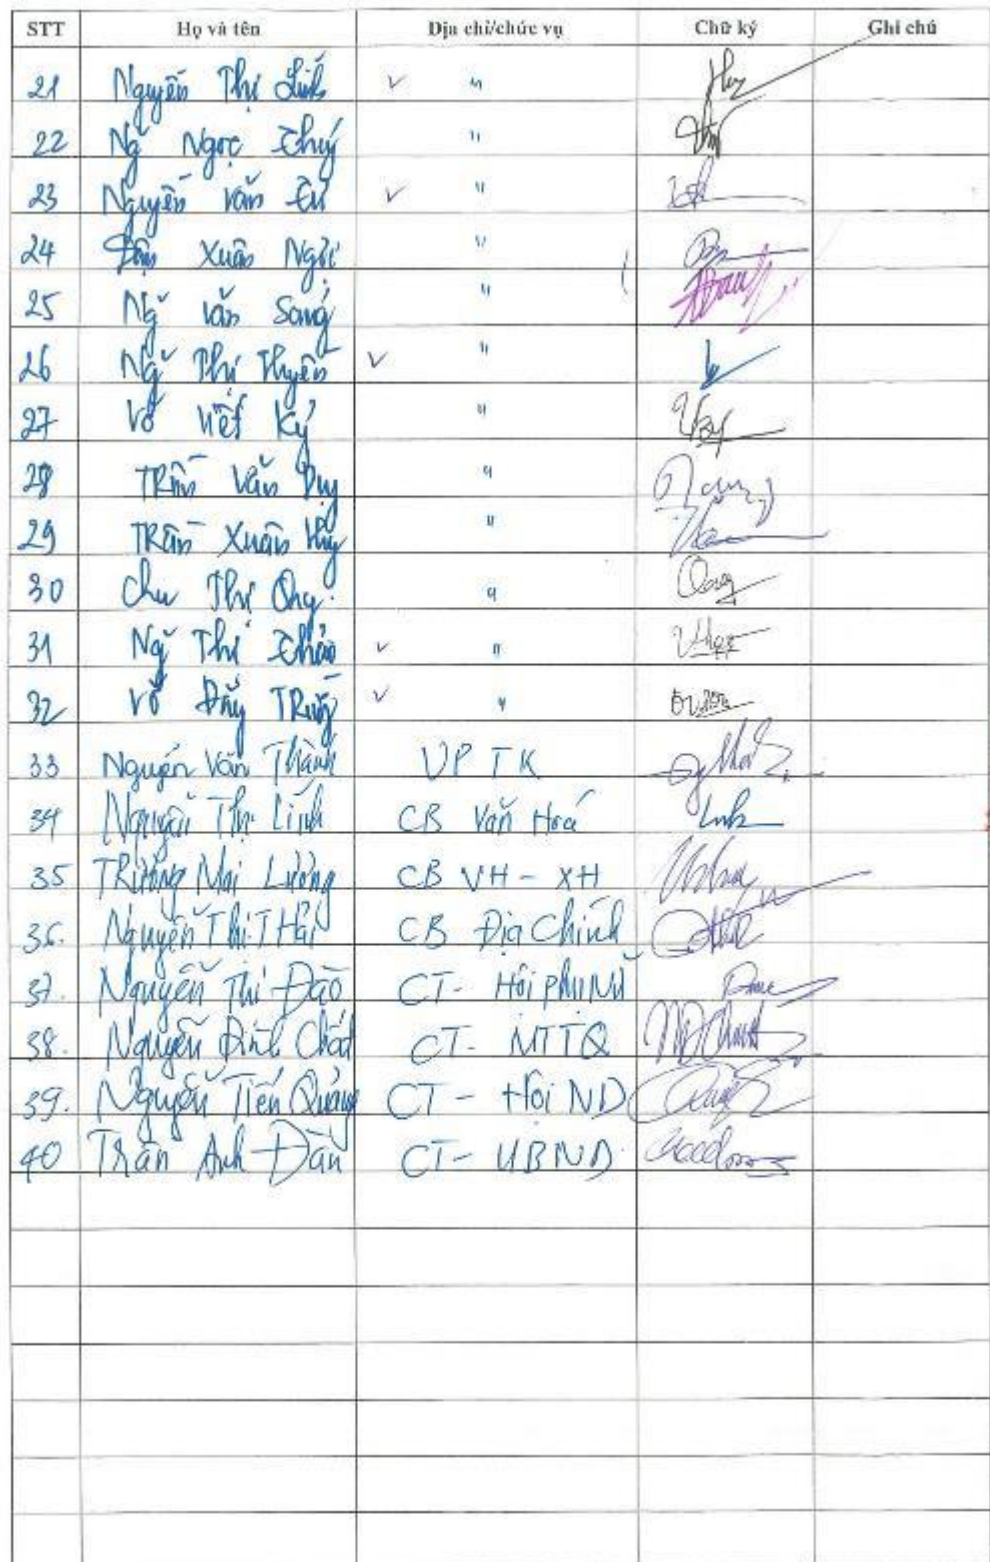 STT Họ và tên Địa chỉ/chức vụ Chữ ký Ghi chú
21 Nguyễn Thị Linh ✓ "
22 Ng̃ Ngọc Thuý "
23 Nguyễn Văn Tú ✓ "
24 Xuân Ngợi "
25 Ng̃ Văn Song "
26 Ng̃ Thị Thuyên ✓ "
27 Võ Viết Kỷ "
28 Trần Văn Duy "
29 Trần Xuân "
30 Chu Thị "
31 Ng̃ Thị Thảo ✓ "
32 Võ ✓ "
33 Nguyễn Văn Thành VP TK
34 Nguyễn Thị Linh CB Văn Hoá Linh
35 Trương Mai Lương CB VH - XH
36. Nguyễn Thị T Hải CB Địa Chính
37. Nguyễn Thị Đào CT- Hội phụ Nữ
38. Nguyễn Đình Chất CT- MTTQ
39. Nguyễn Tiến Quảng CT - Hội ND
40 Trần Anh Đàn CT- UBND